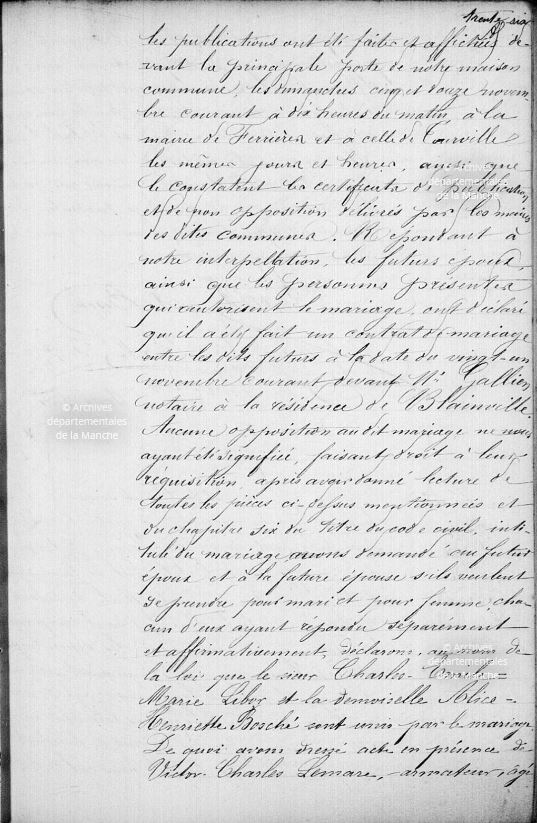 trente six
les publications ont été faites et affichées de-
vant la principale porte de notre maison
commune, les dimanches cinq et douze novem-
bre courant, à dix heures du matin, à la
mairie de Ferrières et à celle de Tourville
les mêmes jours et heures, ainsi que
le constatent les certificats de publication
et de non opposition délivrés par les maires
des dites communes. Répondant à
notre interpellation, les futurs époux,
ainsi que les personnes présentes
qui autorisent le mariage, ont déclaré
qu'il a été fait un contrat de mariage
entre les dits futurs à la date du vingt-un
novembre courant devant Me Gallien,
notaire à la résidence de Blainville.
Aucune opposition audit mariage ne nous
ayant été signifiée, faisant droit à leur
réquisition, après avoir donné lecture de
toutes les pièces ci-dessus mentionnées et
du chapitre six du titre du code civil, inti-
tulé du mariage, avons demandé au futur
époux et à la future épouse s'ils veulent
se prendre pour mari et pour femme, cha-
cun d'eux ayant répondu séparément
et affirmativement, déclarons, au nom de
la loi que le sieur Charles-
Marie Lebor et la demoiselle Alice=
Henriette Bosché sont unis par le mariage.
De quoi avons dressé acte en présence de
Victor-Charles Lemare, armateur, âgé
© Archives
départementales
de la Manche
© Archives
départementales
de la Manche
© Archives
départementales
de la Manche